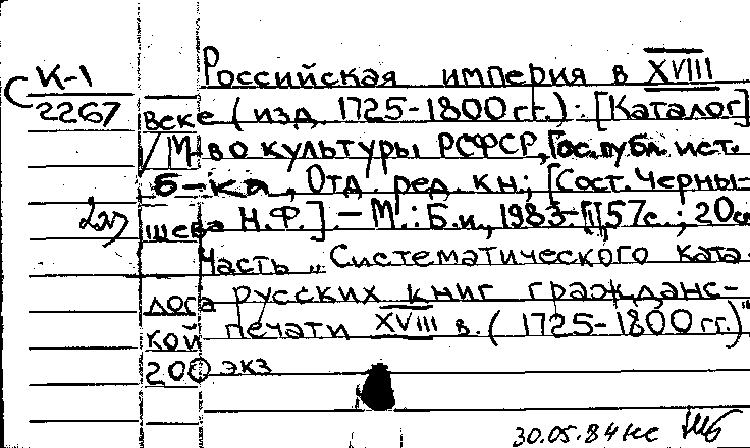 Российская империя в XVIII
С К-1
2267
веке (изд. 1725-1800 гг.): [Каталог]
/ М-во культуры РСФСР, Гос. публ. ист.
б-ка, Отд. ред. кн.; [Сост. Черны-
шева Н.Ф.]. – М.: Б.и., 1983-[II], 57с.; 20см
Часть „Систематического ката-
лога русских книг гражданс-
кой печати XVIII в. (1725-1800 гг.)"
200 экз
30.05.84